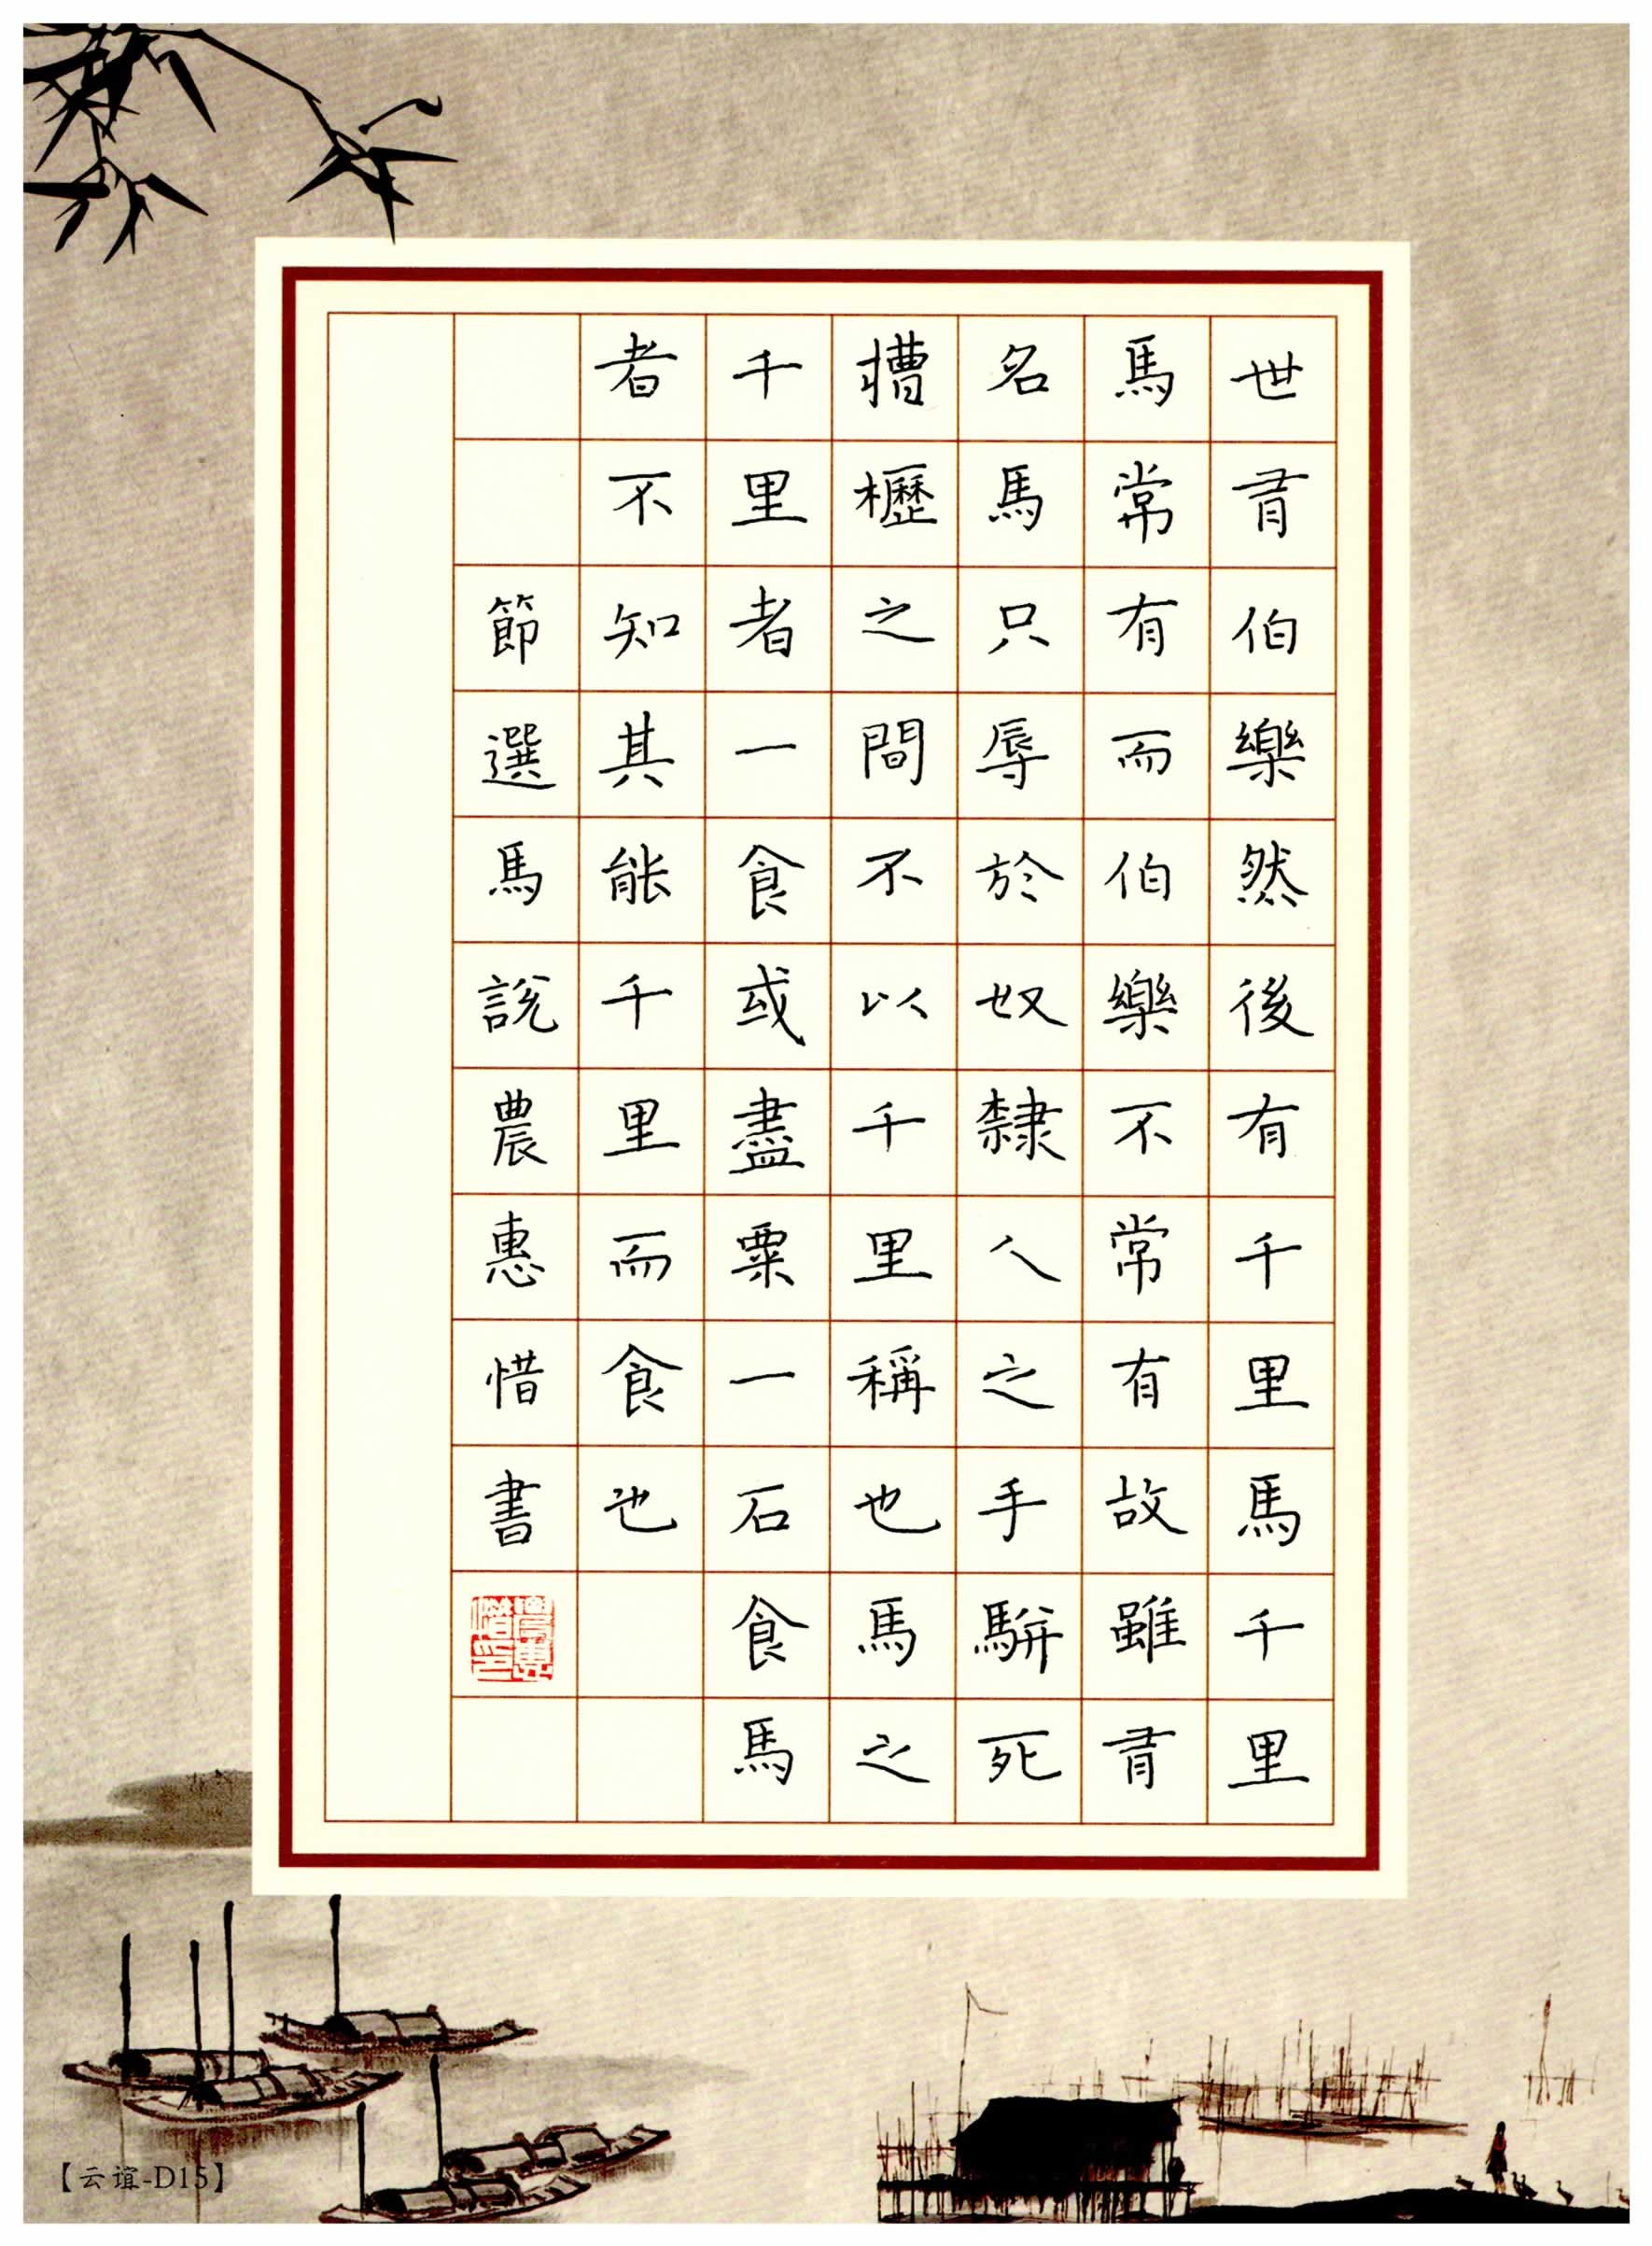 世有伯樂然後有千里馬千里
馬常有而伯樂不常有故雖有
名馬只辱於奴隸人之手駢死
槽櫪之間不以千里稱也馬之
千里者一食或盡粟一石食馬
者不知其能千里而食也
節選馬說農惠惜書
農惠惜印
【云谊-D15】